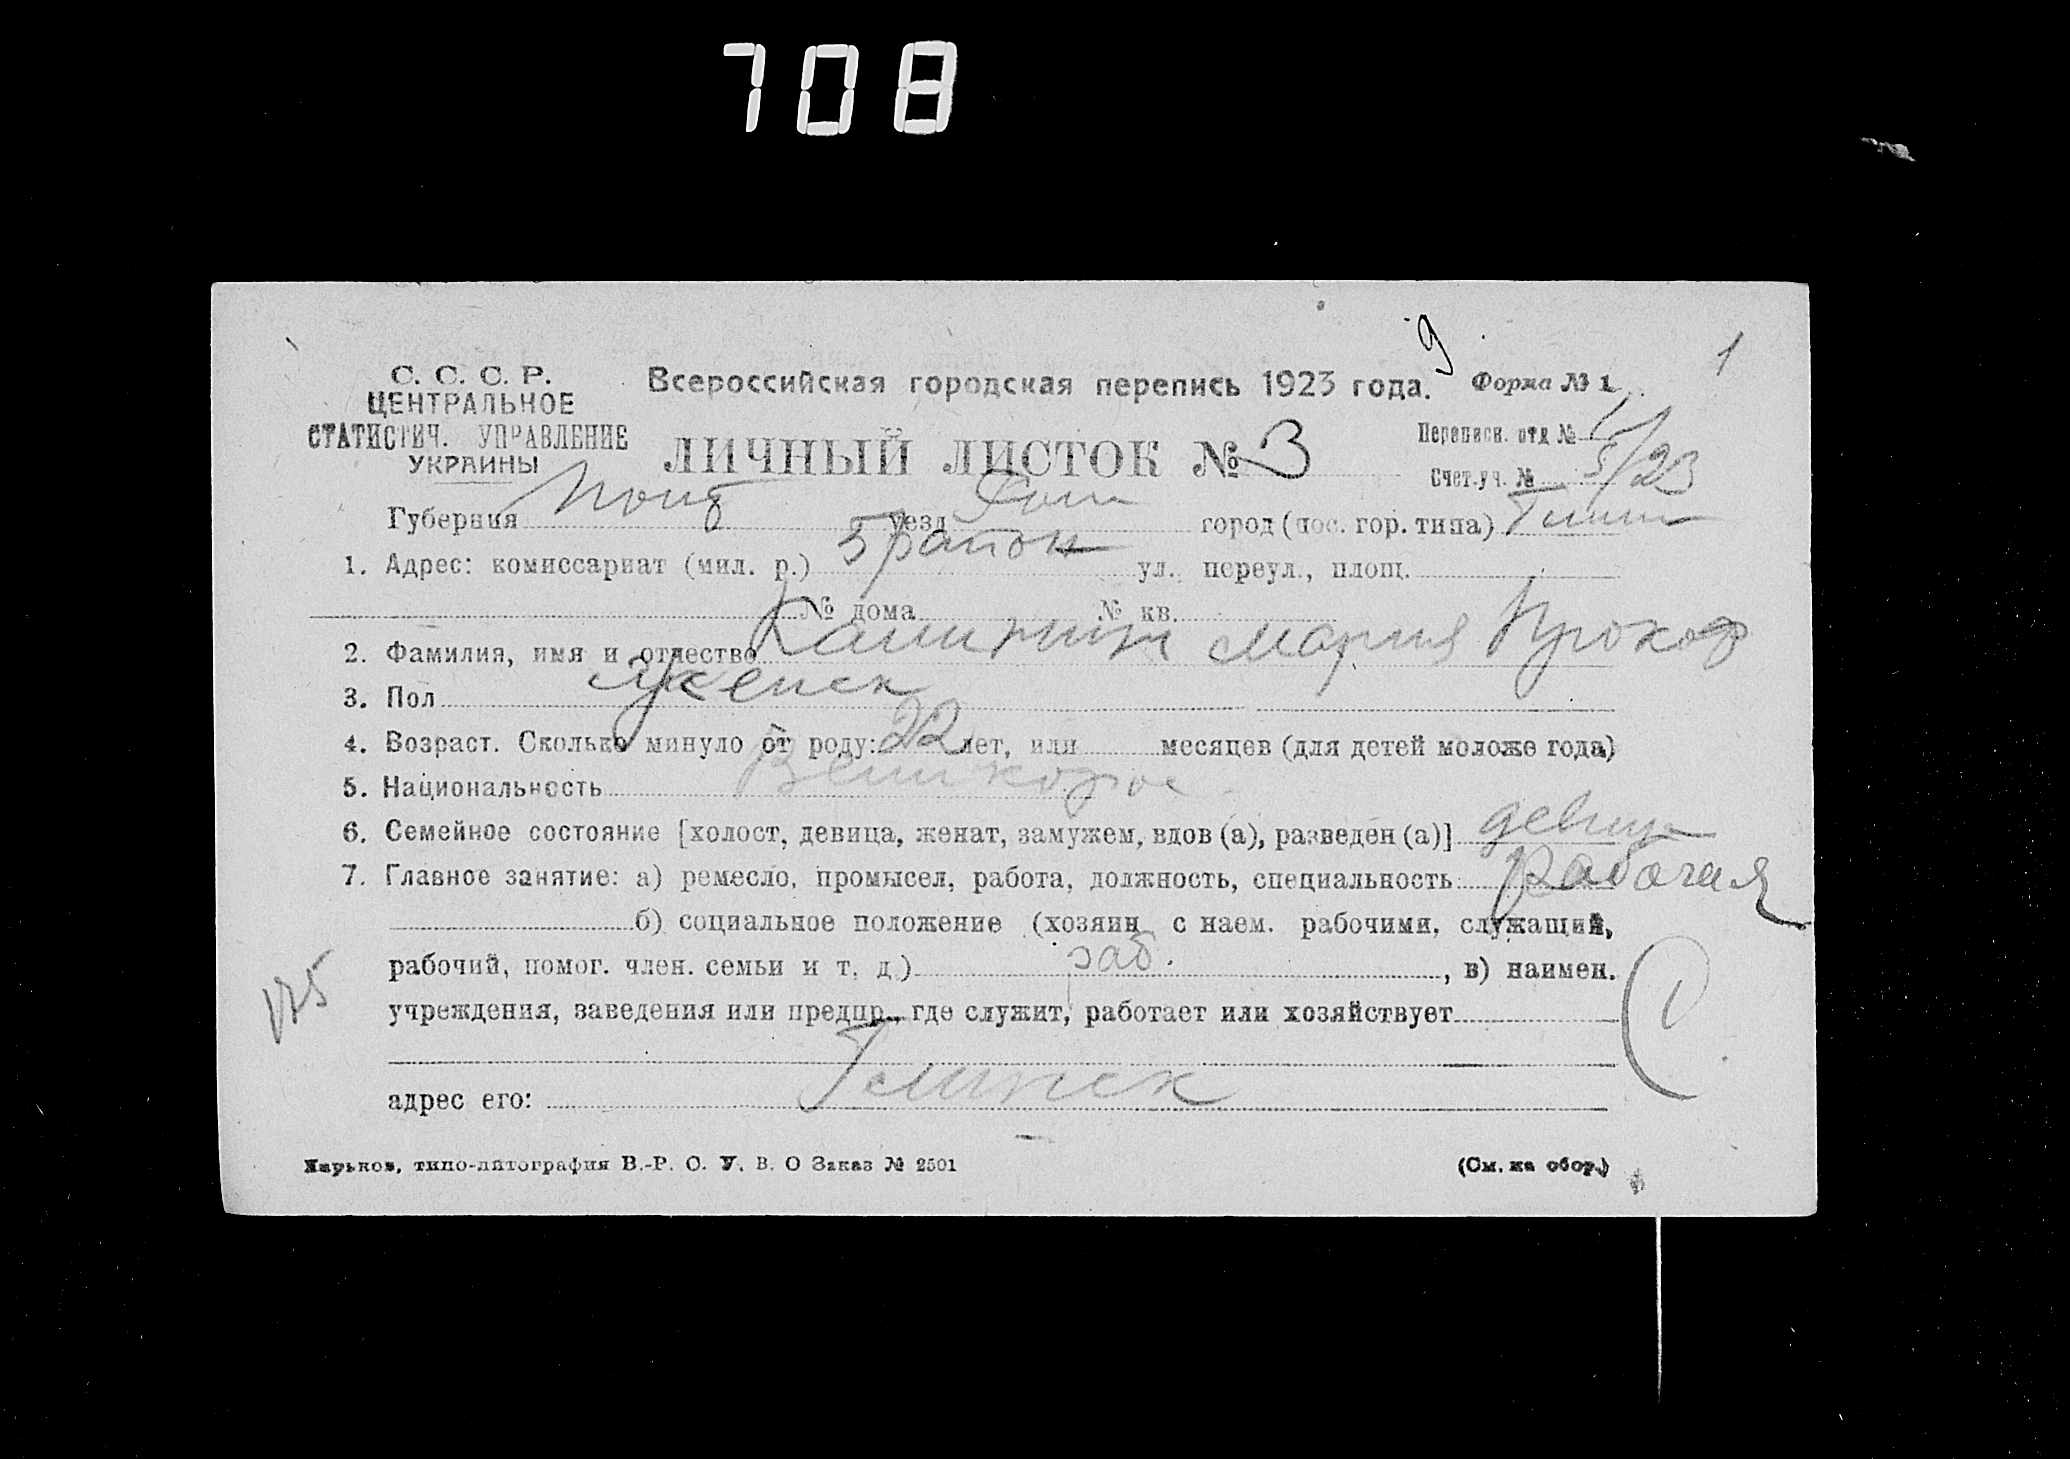 708
9
1
С. С. С. Р.
ЦЕНТРАЛЬНОЕ
СТАТИСТИЧ. УПРАВЛЕНИЕ
УКРАИНЫ
Всероссийская городская перепись 1923 года.
Форма № 1
ЛИЧНЫЙ ЛИСТОК № 3
Переписн. отд №
Счет.уч. № 5/23
Губерния уезд город (пос. гор. типа)
1. Адрес: комиссариат (мил. р.) 5 район ул., переул., площ.
№ дома № кв.
2. Фамилия, имя и отчество Мария Прокоф
3. Пол женск
4. Возраст. Сколько минуло от роду: 22 лет, или месяцев (для детей моложе года)
5. Национальность Великорос
6. Семейное состояние [холост, девица, женат, замужем, вдов (а), разведен (а)] девица
7. Главное занятие: а) ремесло, промысел, работа, должность, специальность рабочая
б) социальное положение (хозяин с наем. рабочими, служащий,
рабочий, помог. член. семьи и т. д.) , в) наимен.
учреждения, заведения или предпр., где служит, работает или хозяйствует
адрес его:
Харьков, типо-литография В.-Р. О. У. В. О Заказ № 2501
(См. на обор.)